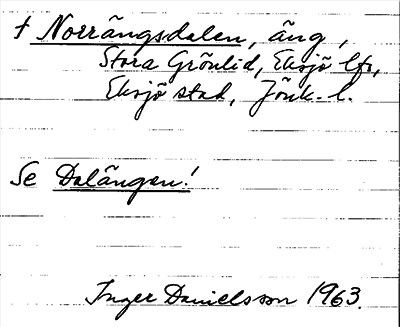 † Norrängsdalen, äng,
Stora Grönlid, Eksjö lfs,
Eksjö stad, Jönk. l.
Se Dalängen!
Inger Danielsson 1963.